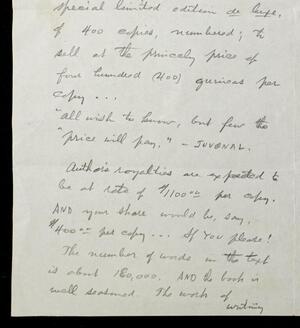 special limited edition de luxe,
of 400 copies, numbered; to
sell at the princely price of
four hundred (400) guineas per
copy...
"All wish to know, but few the
"price will pay." - JUVENAL.
Author's royalties are expected to
be at rate of $1100.00 per copy.
AND your share would be, say,
$400.00 per copy... If YOU please!
The number of words in the text
is about 180,000. AND the book is
well seasoned. The work of
writing